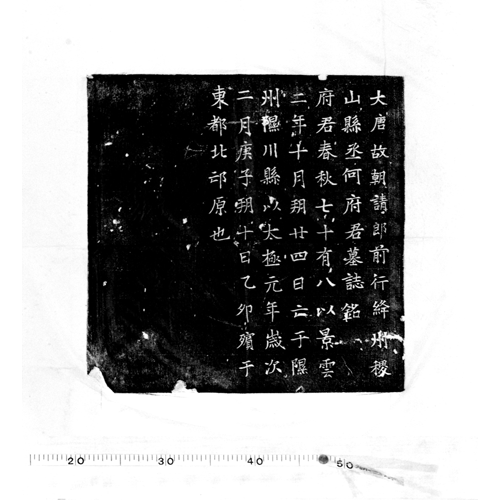 大唐故朝請郎前行絳州稷
山縣丞何府君墓誌銘
府君春秋七十有八以景雲
二年十月朔廿四日亡于隰
州隰川縣以太極元年歲次
二月庚子朔十日乙卯殯于
東都北邙原也
20 30 40 50